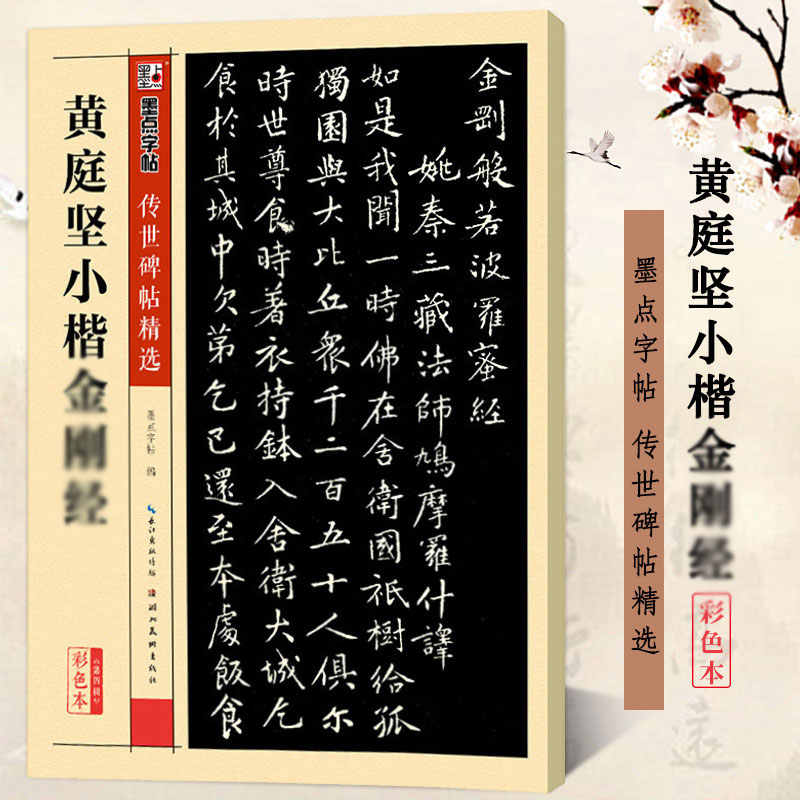 黄庭坚小楷金刚经
墨点字帖 传世碑帖精选
彩色本
金剛般若波羅蜜經
姚秦三藏法師鳩摩羅什譯
如是我聞一時佛在舍衛國祇樹給孤
獨園與大比丘眾千二百五十人俱尔
時世尊食時著衣持鉢入舍衛大城乞
食於其城中次第乞已還至本處飯食
墨点
墨点字帖
传世碑帖精选
墨点字帖 编
长江出版传媒
湖北美术出版社
黄庭坚小楷金刚经
彩色本